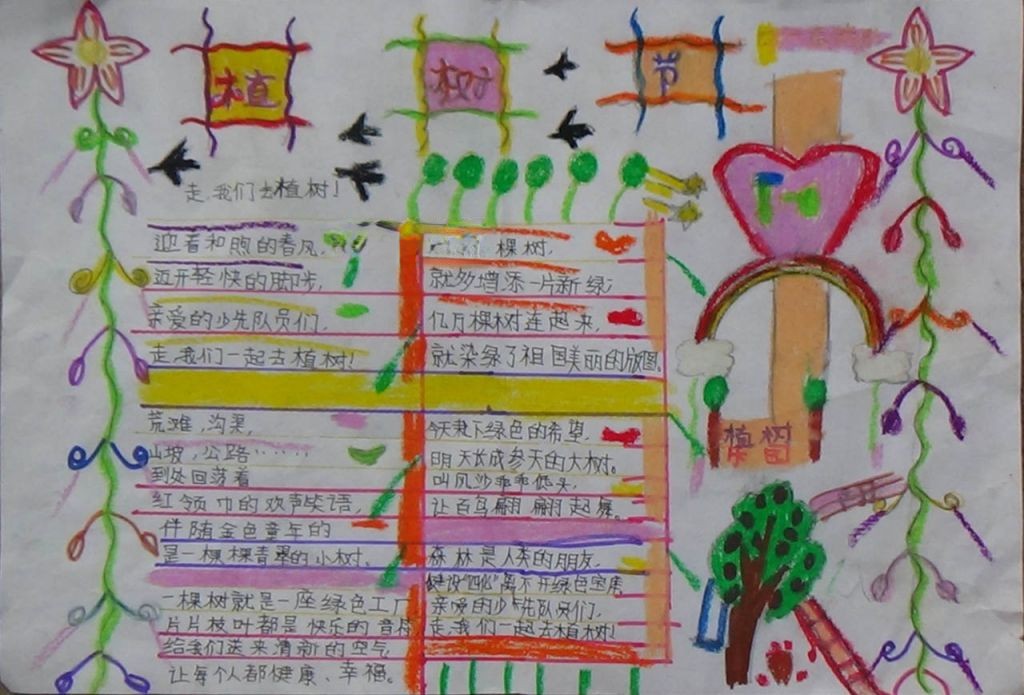 植树节
走,我们去植树!
迎着和煦的春风,
迈开轻快的脚步,
亲爱的少先队员们,
走,我们一起去植树!
荒滩,沟渠,
山坡,公路……
到处回荡着
红领巾的欢声笑语,
伴随金色童年的
是一棵棵青翠的小树。
一棵树就是一座绿色工厂
片片枝叶都是快乐的音符
给我们送来清新的空气,
让每个人都健康、幸福。
棵树,
就多增添一片新绿;
亿万棵树连起来,
就染绿了祖国美丽的版图。
今天栽下绿色的希望,
明天长成参天的大树。
叫风沙乖乖低头,
让百鸟翩翩起舞。
森林是人类的朋友,
建设"四化"离不开绿色宝库
亲爱的少先队员们,
走,我们一起去植树!
植树
乐园